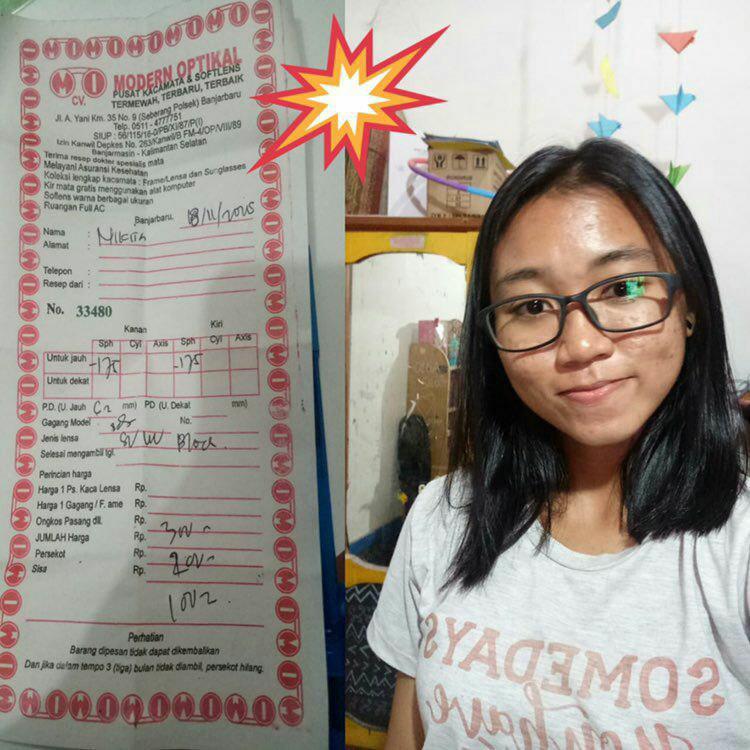 MODERN OPTIKAL
CV.
PUSAT KACAMATA & SOFTLENS
TERMEWAH, TERBARU, TERBAIK
Jl. A. Yani Km. 35 No. 9 (Seberang Polsek) Banjarbaru
Telp. 0511 - 4777751
SIUP : 56/115/16-0/PB/XI/87/P(I)
Izin Kanwil Depkes No. 263/Kanwil/B FM-4/OP/VIII/89
Banjarmasin - Kalimantan Selatan
Terima resep dokter spesialis mata
Melayani Asuransi Kesehatan
Koleksi lengkap kacamata : Frame/Lensa dan Sunglasses
Kir mata gratis menggunakan alat komputer
Softlens warna berbagai ukuran
Ruangan Full AC
Banjarbaru,
Nama :
Alamat :
Telepon :
Resep dari :
No. 33480
Kanan Kiri
Sph Cyl Axis Sph Cyl Axis
Untuk jauh -175 -175
Untuk dekat
P.D. (U. Jauh mm) PD (U. Dekat mm)
Gagang Model No.
Jenis lensa
Selesai mengambil tgl.
Perincian harga
Harga 1 Ps. Kaca Lensa Rp.
Harga 1 Gagang / F. ame Rp.
Ongkos Pasang dll. Rp.
JUMLAH Harga Rp.
Persekot Rp.
Sisa Rp.
Perhatian
Barang dipesan tidak dapat dikembalikan
Dan jika dalam tempo 3 (tiga) bulan tidak diambil, persekot hilang.
SOMEDAYS